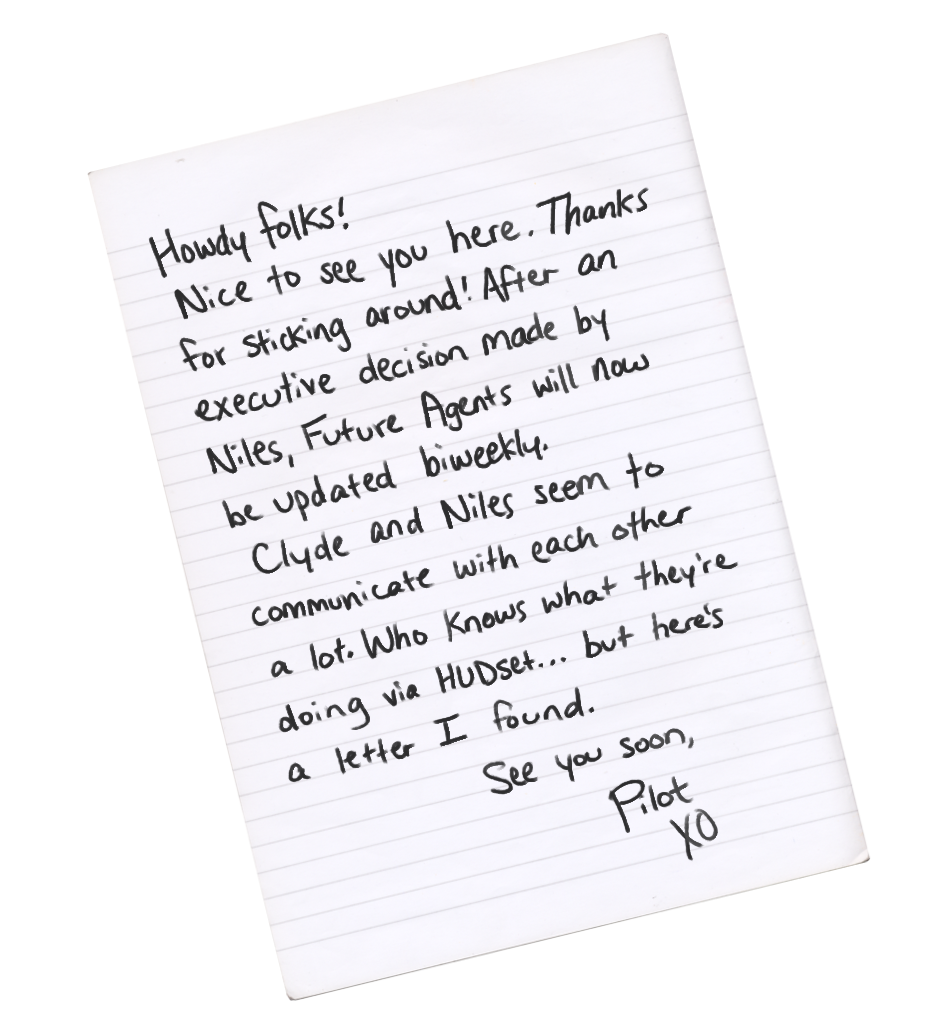 Howdy folks!
Nice to see you here. Thanks
for sticking around! After an
executive decision made by
Niles, Future Agents will now
be updated biweekly.
Clyde and Niles seem to
communicate with each other
a lot. Who knows what they're
doing via HUDset... but here's
a letter I found.
See you soon,
Pilot
XO